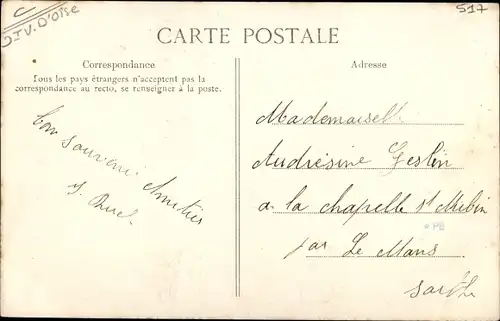 517
V. D'Oise
CARTE POSTALE
Correspondance
Tous les pays étrangers n'acceptent pas la
correspondance au recto, se renseigner à la poste.
Adresse
Bon souvenir. Amitiés
Mademoiselle
Andrésine Geslin
a la chapelle st Aubin
par Le Mans
Sarthe
PB